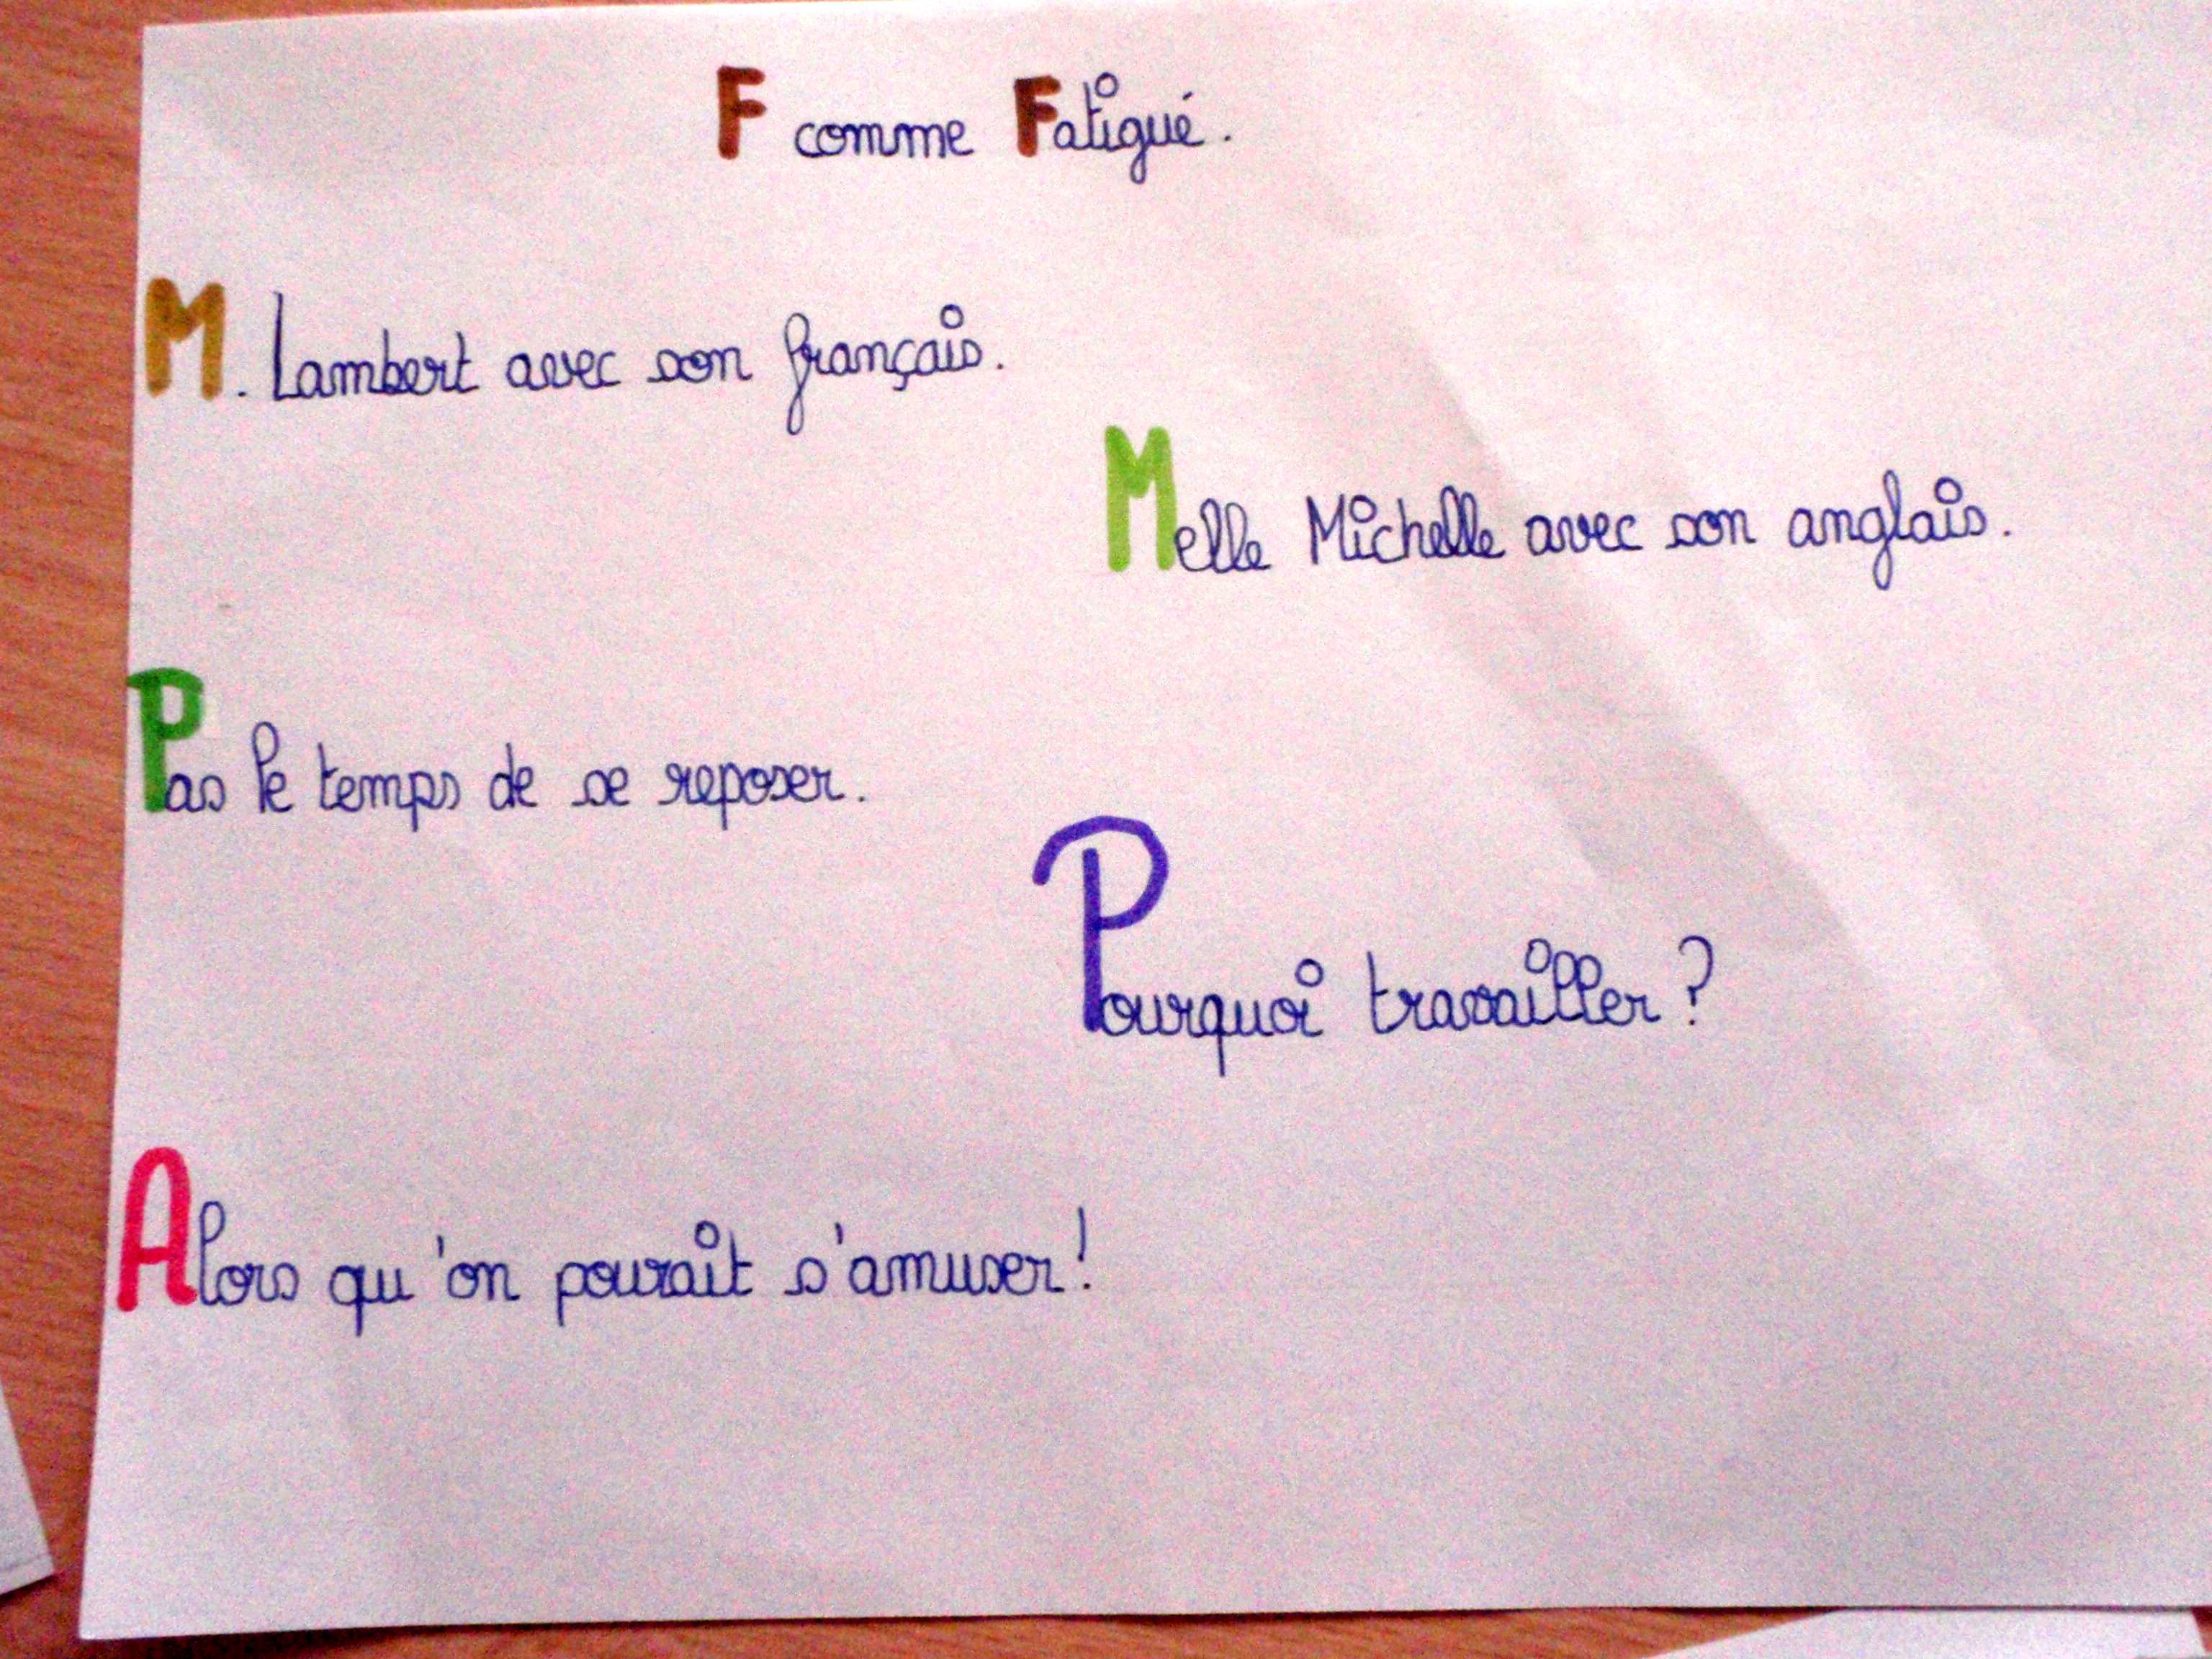 F comme Fatigué.
M. Lambert avec son français.
Melle Michelle avec son anglais.
Pas le temps de se reposer.
Pourquoi travailler ?
Alors qu'on pourait s'amuser !